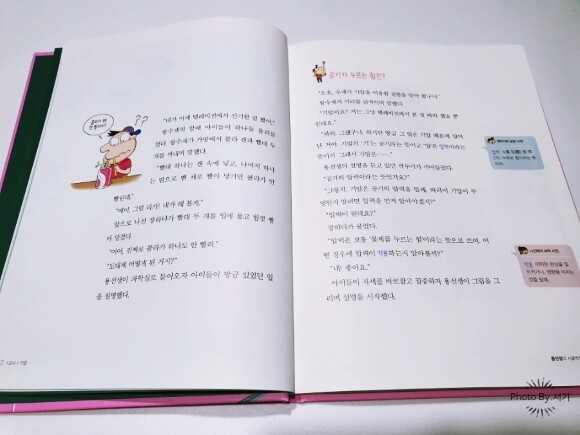 "내가 어제 텔레비전에서 신기한 걸 봤어."
왕수재의 말에 아이들이 하나둘 몰려들
었다. 왕수재가 가방에서 콜라 캔과 빨대 두
개를 꺼내며 말했다.
"빨대 하나는 캔 속에 넣고, 나머지 하나
는 밖으로 뺀 채로 빨아 당기면 콜라가 안
빨린대."
"에이, 그럴 리가! 내가 해 볼게."
앞으로 나선 장하다가 빨대 두 개를 입에 물고 힘껏 빨
아 당겼다.
"어어, 진짜로 콜라가 하나도 안 빨려."
"도대체 어떻게 된 거지?"
용선생이 과학실로 들어오자 아이들이 방금 있었던 일
을 설명했다.
공기가 누르는 힘은?
"오호, 수재가 기압을 이용한 실험을 알아 왔구나."
왕수재가 머리를 긁적이며 말했다.
"기압이요? 저는 그냥 텔레비전에서 본 걸 따라 했을 뿐
인데요."
"하하, 그랬구나. 하지만 방금 그 일은 기압 때문에 일어
난 거야. 기압의 '기'는 공기라는 뜻이고, '압'은 압력이라는
뜻이지. 그래서 기압은……."
용선생의 설명을 듣고 있던 곽두기가 끼어들었다.
"공기의 압력이라는 뜻인가요?"
"그렇지. 기압은 공기의 압력을 말해. 따라서 기압이 무
엇인지 알려면 압력을 먼저 알아야겠지?"
"압력이 뭔데요?"
장하다가 물었다.
"압력은 보통 '물체를 누르는 힘'이라는 뜻으로 쓰여. 어
떤 경우에 압력이 작용하는지 알아볼까?"
"네! 좋아요."
아이들이 자세를 바로잡고 집중하자 용선생이 그림을 그
리며 설명을 시작했다.
작용 어떠한 현상을 일
으키거나, 영향을 미치는
것을 말해.
Photo By.서기